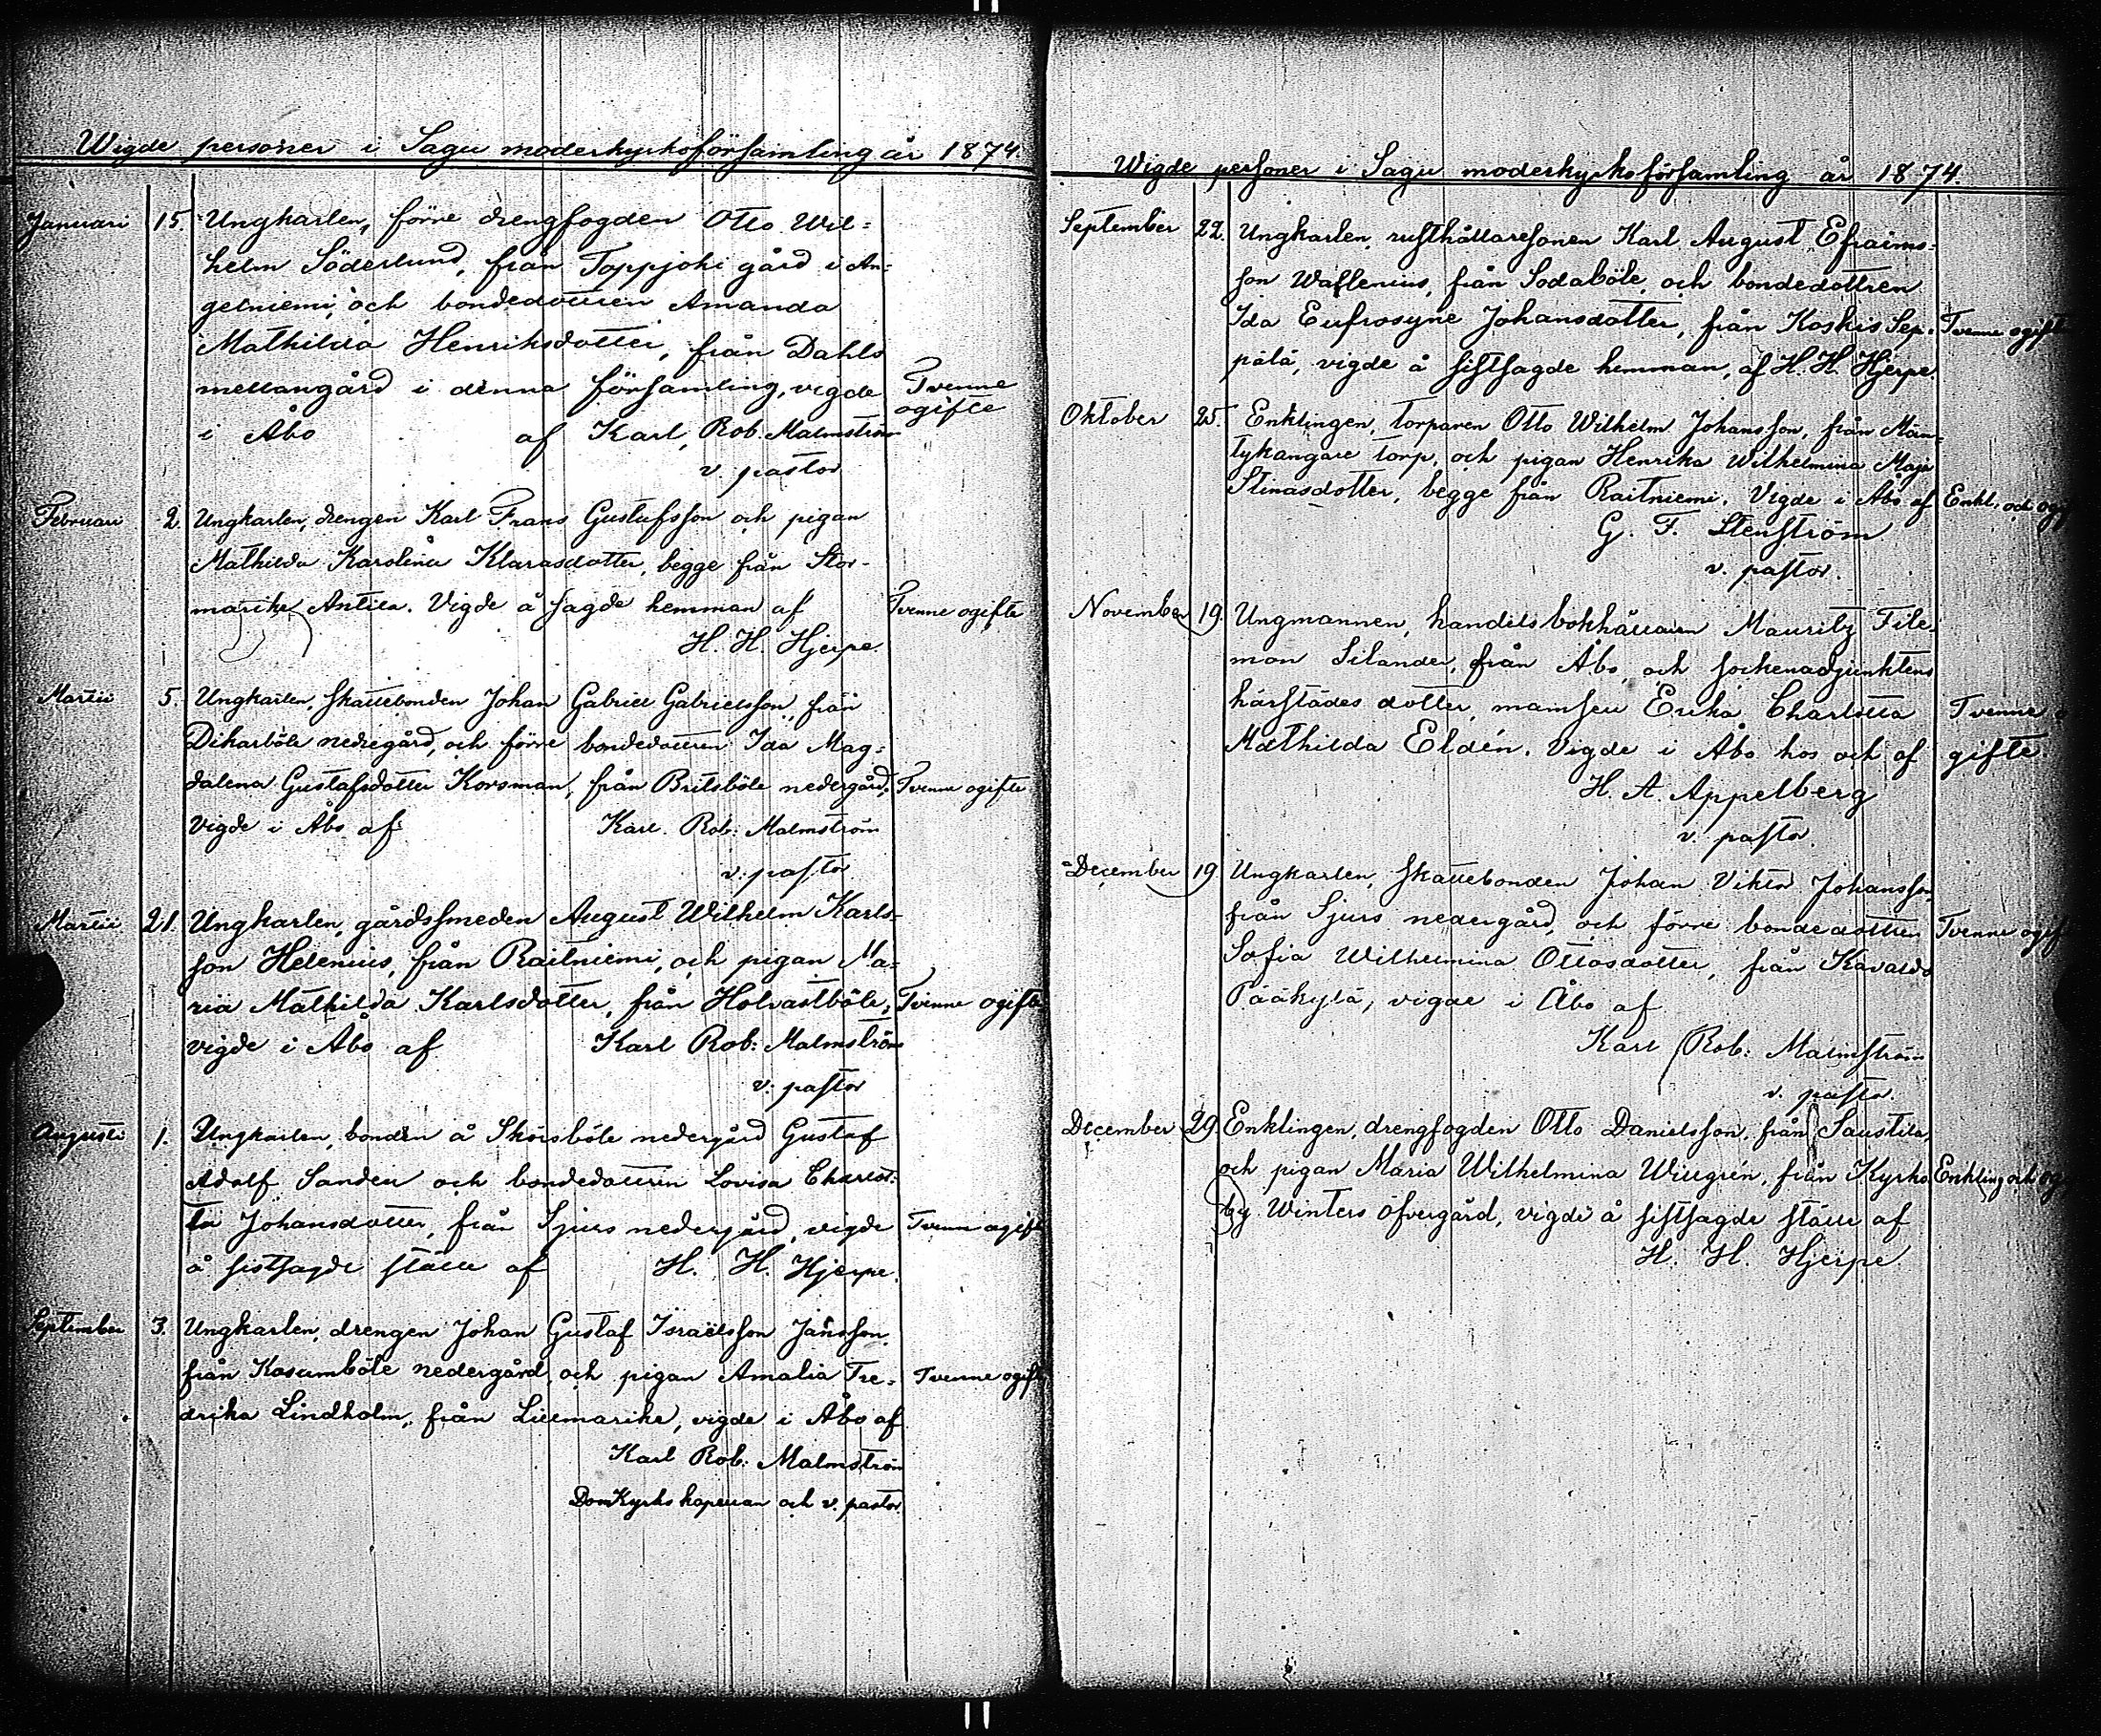 Wigde personer i Sagu moderkyrkoförsamling år 1874.
Januari 15. Ungkarlen, förre drengfogden Otto Wil=
helm Söderlund, från Toppjoki gård i An=
gelniemi, och bondedottren Amanda
Mathilda Henriksdotter, från Dahls
mellangård i denna församling, vigde Tvenne
ogifte
i Åbo af Karl Rob. Malmström
v. pastor
Februari 2. Ungkarlen, drengen Karl Frans Gustafsson och pigan
Mathilda Karolina Klarasdotter, begge från Stor-
marike Antila. Vigde å sagde hemman af Tvenne ogifte
H. H. Hjerpe.
Martii 5. Ungkarlen, skattebonden Johan Gabriel Gabrielsson, från
Dikarböle nedregård, och förre bondedottren Ida Mag=
dalena Gustafsdotter Korsman, från Britsböle nedergård. Tvenne ogifte
Vigde i Åbo af Karl. Rob: Malmström
v. pastor
Martii 21. Ungkarlen, gårdssmeden August Wilhelm Karls-
son Helenius, från Raitniemi, och pigan Ma=
ria Mathilda Karlsdotter, från Holvastböle, Tvenne ogifte
vigde i Åbo af Karl Rob: Malmström
v. pastor
Augusti 1. Ungkarlen, bonden å Skörsböle nedergård Gustaf
Adolf Sandell och bondedottren Lovisa Charlot=
ta Johansdotter, från Sjurs nedergård, vigde Tvenne ogifte
å sistsagde ställe af H. H. Hjerpe.
September 3. Ungkarlen, drengen Johan Gustaf Israëlsson Jansson,
från Kasumböle nedergård, och pigan Amalia Fre=
Tvenne ogifte
drika Lindholm, från Lillmarike, vigde i Åbo af
Karl Rob: Malmström
Domkyrko kapellan och v. pastor.
Wigde personer i Sagu moderkyrkoförsamling år 1874.
September 22. Ungkarlen, rusthållaresonen Karl August Efraims=
son Waflenius, från Sodaböle, och bondedottren
Ida Eufrosyne Johansdotter, från Koskis Sep= Tvenne ogifte
pälä, vigde å sistsagde hemman, af H. H. Hjerpe.
Oktober 25. Enklingen, torparen Otto Wilhelm Johansson, från Män=
tykangare torp, och pigan Henrika Wilhelmina Maja
Stinasdotter, begge från Raitniemi. Vigde i Åbo af Enkl. och og
G. F. Stenström
v. pastor.
November 19. Ungmannen, handelsbokhållaren Mauritz File=
mon Silander, från Åbo, och sockenadjunktens
härstädes dotter, mamsell Erika Charlotta Tvenne o
Mathilda Eldén. Vigde i Åbo hos och af gifte.
H. A. Appelberg
v. pastor.
December 19. Ungkarlen, skattebonden Johan Viktor Johansson,
från Sjurs nedergård, och förre bondedottren Tvenne ogif
Sofia Wilhelmina Ottosdotter, från Kavaldo
Pääkylä, vigde i Åbo af
Karl Rob: Malmström
v. pastor.
December 29. Enklingen, drengfogden Otto Danielsson, från Saustila,
och pigan Maria Wilhelmina Willgrén, från Kyrko Enkling och og
by Winters öfvergård, vigde å sistsagde ställe af
H. H. Hjerpe